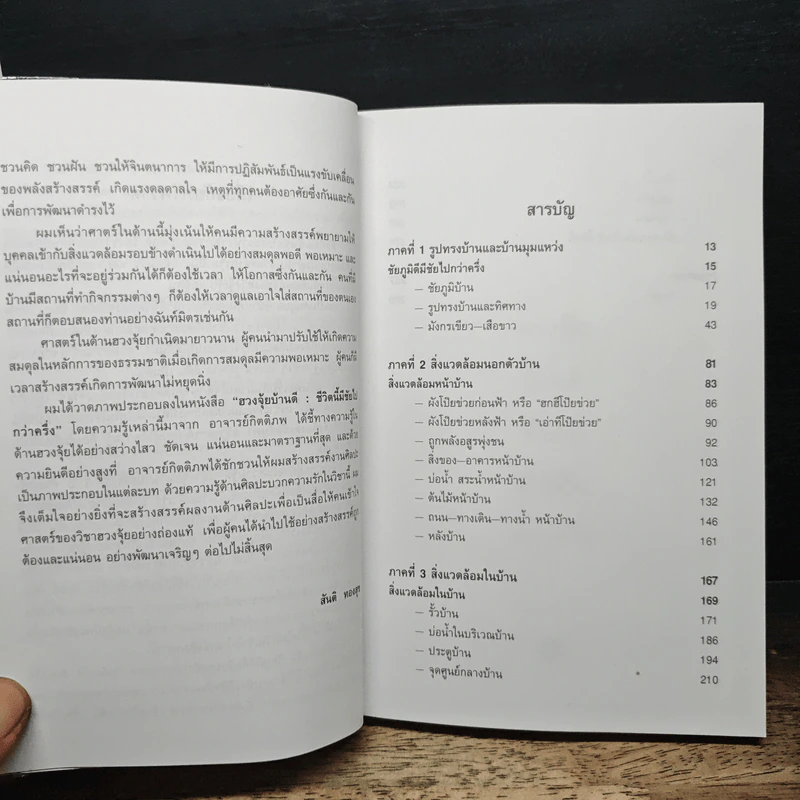 ชวนคิด ชวนฝัน ชวนให้จินตนาการ ให้มีการปฏิสัมพันธ์เป็นแรงขับเคลื่อน
ของพลังสร้างสรรค์ เกิดแรงดลดาลใจ เหตุที่ทุกคนต้องอาศัยซึ่งกันและกัน
เพื่อการพัฒนาดำรงไว้
ผมเห็นว่าศาสตร์ในด้านนี้มุ่งเน้นให้คนมีความสร้างสรรค์พยายามให้
บุคคลเข้ากับสิ่งแวดล้อมรอบข้างดำเนินไปได้อย่างสมดุลพอดี พอเหมาะ และ
แน่นอนอะไรที่จะอยู่ร่วมกันได้ก็ต้องใช้เวลา ให้โอกาสซึ่งกันและกัน คนที่มี
บ้านมีสถานที่ทำกิจกรรมต่างๆ ก็ต้องให้เวลาดูแลเอาใจใส่สถานที่ของตนเอง
สถานที่ก็ตอบสนองท่านอย่างฉันท์มิตรเช่นกัน
ศาสตร์ในด้านฮวงจุ้ยกำเนิดมายาวนาน ผู้คนนำมาปรับใช้ให้เกิดความ
สมดุลในหลักการของธรรมชาติเมื่อเกิดการสมดุลมีความพอเหมาะ ผู้คนก็มี
เวลาสร้างสรรค์เกิดการพัฒนาไม่หยุดนิ่ง
ผมได้วาดภาพประกอบลงในหนังสือ “ฮวงจุ้ยบ้านดี : ชีวิตนี้มีชัยไป
กว่าครึ่ง” โดยความรู้เหล่านี้มาจาก อาจารย์กิตติภพ ได้ชี้ทางความรู้ใน
ด้านฮวงจุ้ยได้อย่างสว่างไสว ชัดเจน แน่นอนและมาตราฐานที่สุด และด้วย
ความยินดีอย่างสูงที่ อาจารย์กิตติภพได้ชักชวนให้ผมสร้างสรรค์งานศิลปะ
เป็นภาพประกอบในแต่ละบท ด้วยความรู้ด้านศิลปะบวกความรักในวิชานี้ ผม
จึงเต็มใจอย่างยิ่งที่จะสร้างสรรค์ผลงานด้านศิลปะเพื่อเป็นสื่อให้คนเข้าใจ
ศาสตร์ของวิชาฮวงจุ้ยอย่างถ่องแท้ เพื่อผู้คนได้นำไปใช้อย่างสร้างสรรค์ถูก
ต้องและแน่นอน อย่างพัฒนาเจริญๆ ต่อไปไม่สิ้นสุด
สันติ
สารบัญ
ภาคที่ 1 รูปทรงบ้านและบ้านมุมแหว่ง 13
ชัยภูมิดีมีชัยไปกว่าครึ่ง 15
– ชัยภูมิบ้าน 17
– รูปทรงบ้านและทิศทาง 19
– มังกรเขียว–เสือขาว 43
ภาคที่ 2 สิ่งแวดล้อมนอกตัวบ้าน 81
สิ่งแวดล้อมหน้าบ้าน 83
– ผังโป๊ยข่วยก่อนฟ้า หรือ “ฮกฮีโป๊ยข่วย” 86
– ผังโป๊ยข่วยหลังฟ้า หรือ “เอ่าทีโป๊ยข่วย” 90
– ถูกพลังอสูรพุ่งชน 92
– สิ่งของ–อาคารหน้าบ้าน 103
– บ่อน้ำ สระน้ำหน้าบ้าน 121
– ต้นไม้หน้าบ้าน 132
– ถนน–ทางเดิน–ทางน้ำ หน้าบ้าน 146
– หลังบ้าน 161
ภาคที่ 3 สิ่งแวดล้อมในบ้าน 167
สิ่งแวดล้อมในบ้าน 169
– รั้วบ้าน 171
– บ่อน้ำในบริเวณบ้าน 186
– ประตูบ้าน 194
– จุดศูนย์กลางบ้าน 210